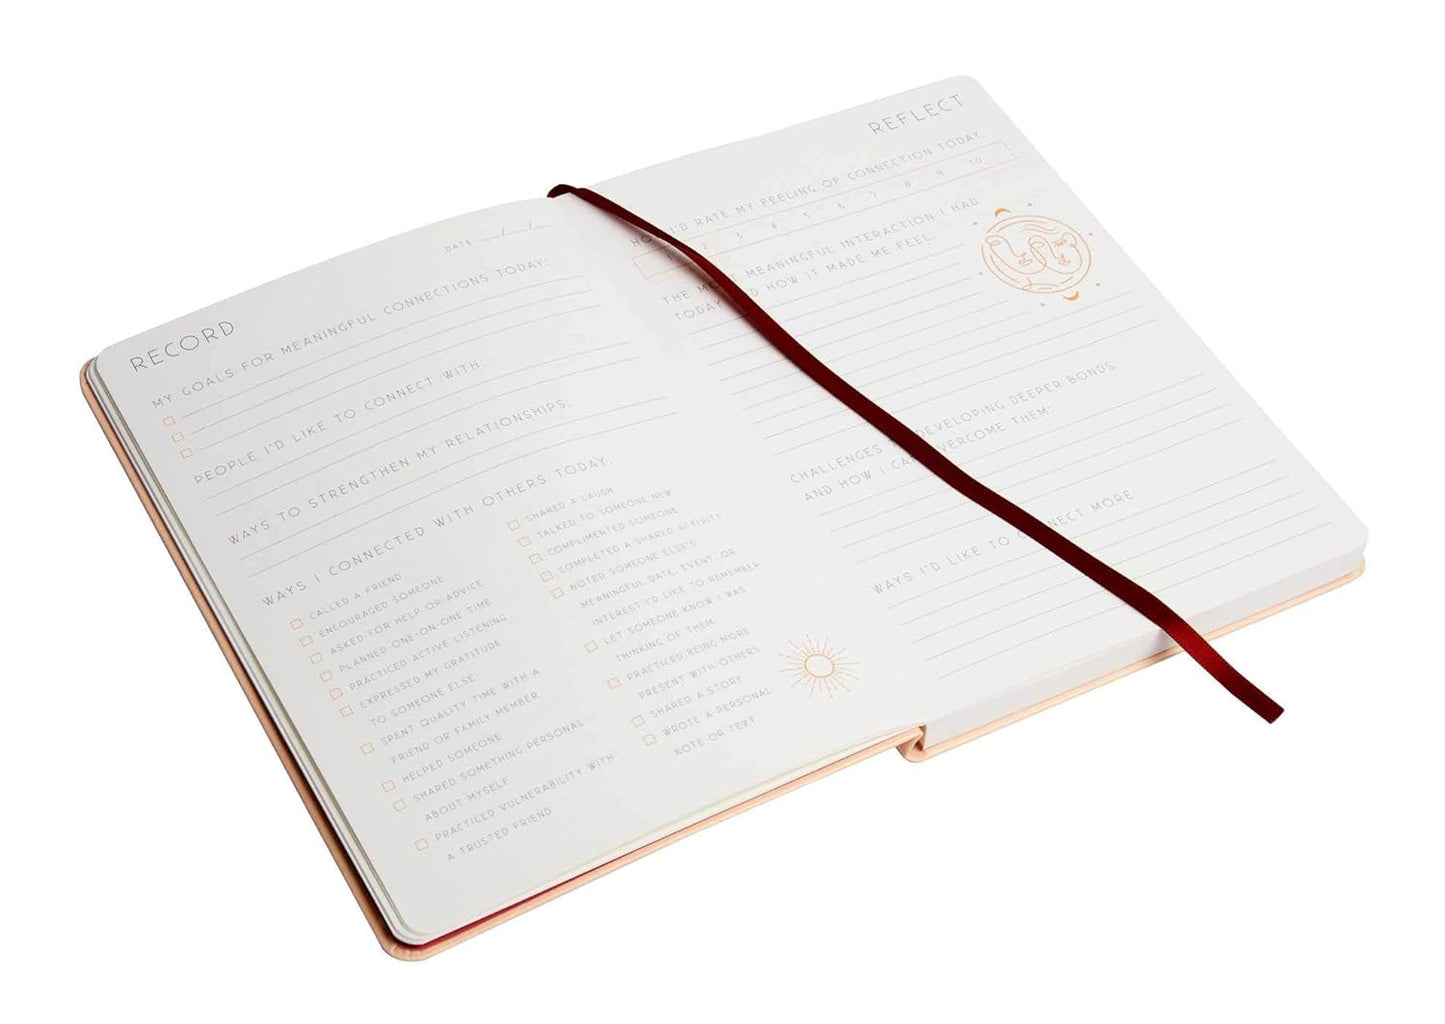 RECORD
DATE __/__/__
MY GOALS FOR MEANINGFUL CONNECTIONS TODAY:
PEOPLE I'D LIKE TO CONNECT WITH:
WAYS TO STRENGTHEN MY RELATIONSHIPS:
WAYS I CONNECTED WITH OTHERS TODAY:
CALLED A FRIEND
ENCOURAGED SOMEONE
ASKED FOR HELP OR ADVICE
PLANNED ONE-ON-ONE TIME
PRACTICED ACTIVE LISTENING
EXPRESSED MY GRATITUDE
TO SOMEONE ELSE
SPENT QUALITY TIME WITH A
FRIEND OR FAMILY MEMBER
HELPED SOMEONE
SHARED SOMETHING PERSONAL
ABOUT MYSELF
PRACTICED VULNERABILITY WITH
A TRUSTED FRIEND
SHARED A LAUGH
TALKED TO SOMEONE NEW
COMPLIMENTED SOMEONE
COMPLETED A SHARED ACTIVITY
NOTED SOMEONE ELSE'S
MEANINGFUL DATE, EVENT, OR
INTEREST I'D LIKE TO REMEMBER
LET SOMEONE KNOW I WAS
THINKING OF THEM
PRACTICED BEING MORE
PRESENT WITH OTHERS
SHARED A STORY
WROTE A PERSONAL
NOTE OR TEXT
REFLECT
I'D RATE MY FEELING OF CONNECTION TODAY
1 2 3 4 5 6 7 8 9 10
THE MOST MEANINGFUL INTERACTION I HAD
TODAY AND HOW IT MADE ME FEEL:
CHALLENGES TO DEVELOPING DEEPER BONDS
AND HOW I CAN OVERCOME THEM:
WAYS I'D LIKE TO CONNECT MORE: